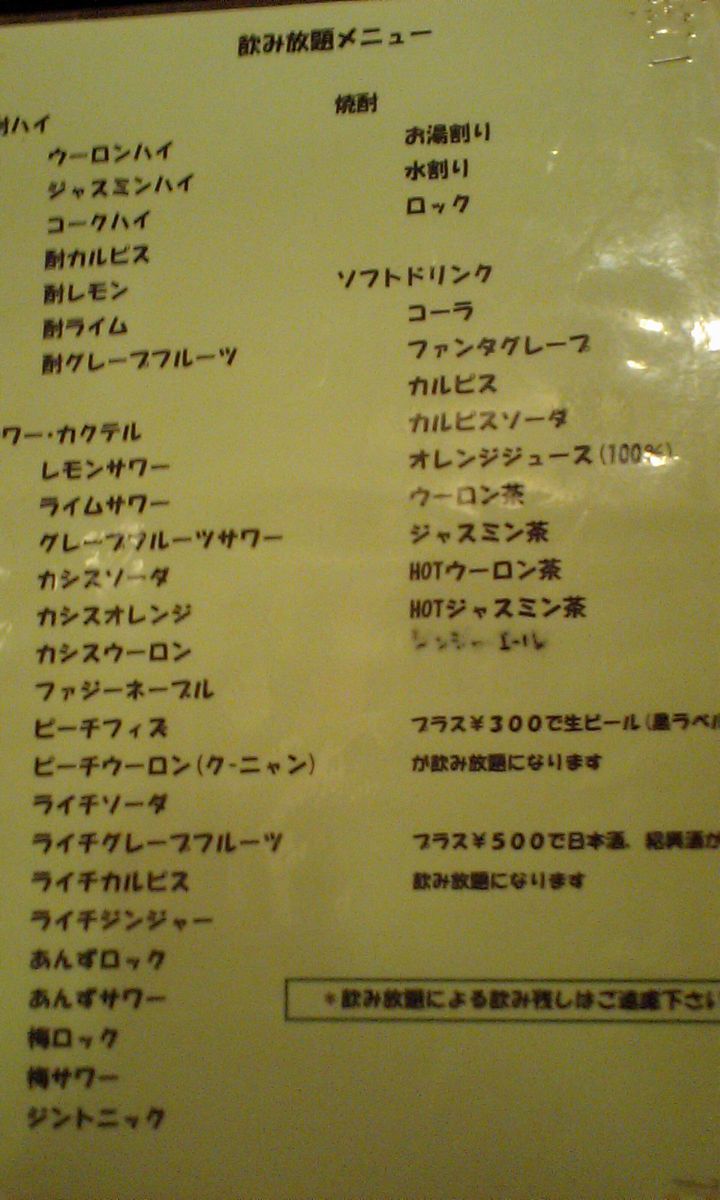 飲み放題メニュー
酎ハイ
ウーロンハイ
ジャスミンハイ
コークハイ
酎カルピス
酎レモン
酎ライム
酎グレープフルーツ
ワー・カクテル
レモンサワー
ライムサワー
グレープフルーツサワー
カシスソーダ
カシスオレンジ
カシスウーロン
ファジーネーブル
ピーチフィズ
ピーチウーロン(ク-ニャン)
ライチソーダ
ライチグレープフルーツ
ライチカルピス
ライチジンジャー
あんずロック
あんずサワー
梅ロック
梅サワー
ジントニック
焼酎
お湯割り
水割り
ロック
ソフトドリンク
コーラ
ファンタグレープ
カルピス
カルピスソーダ
オレンジジュース(100%)
ウーロン茶
ジャスミン茶
HOTウーロン茶
HOTジャスミン茶
プラス¥300で生ビール(黒ラベル
が飲み放題になります
プラス¥500で日本酒、紹興酒が
飲み放題になります
*飲み放題による飲み残しはご遠慮下さい